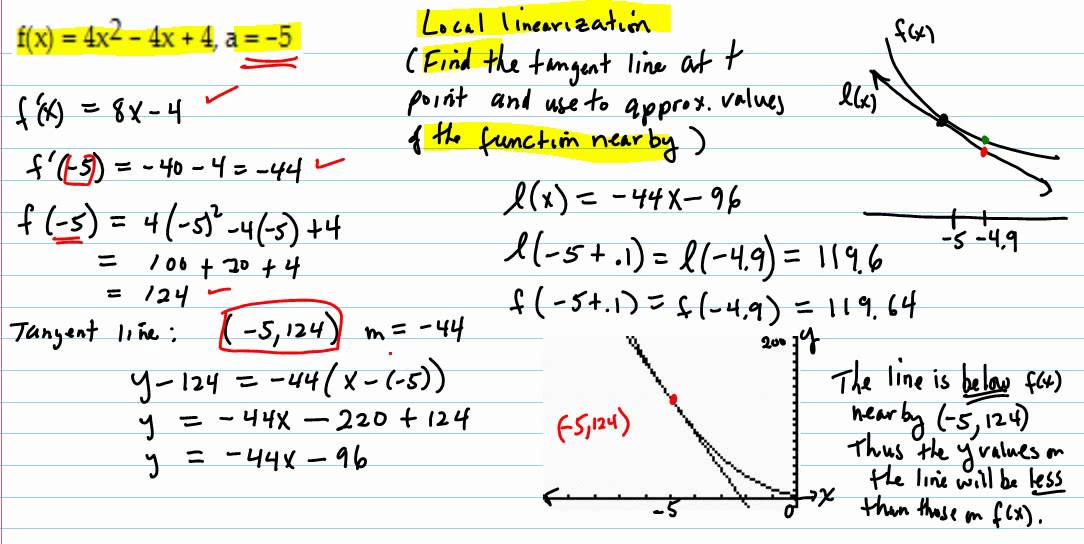 f(x) = 4x² − 4x + 4, a = −5
f'(x) = 8x − 4
f'(−5) = −40 − 4 = −44
f(−5) = 4(−5)² −4(−5) + 4
= 100 + 20 + 4
= 124
Tangent line: (−5, 124) m = −44
y − 124 = −44(x − (−5))
y = −44x − 220 + 124
y = −44x − 96
Local linearization
(Find the tangent line at t
point and use to approx. values
of the function nearby)
l(x) = −44x − 96
l(−5 + .1) = l(−4.9) = 119.6
f(−5+.1) = f(−4.9) = 119.64
f(x)
l(x)
−5 −4.9
200 y
(−5, 124)
−5 0 x
The line is below f(x)
nearby (−5, 124)
Thus the y values on
the line will be less
than those on f(x).